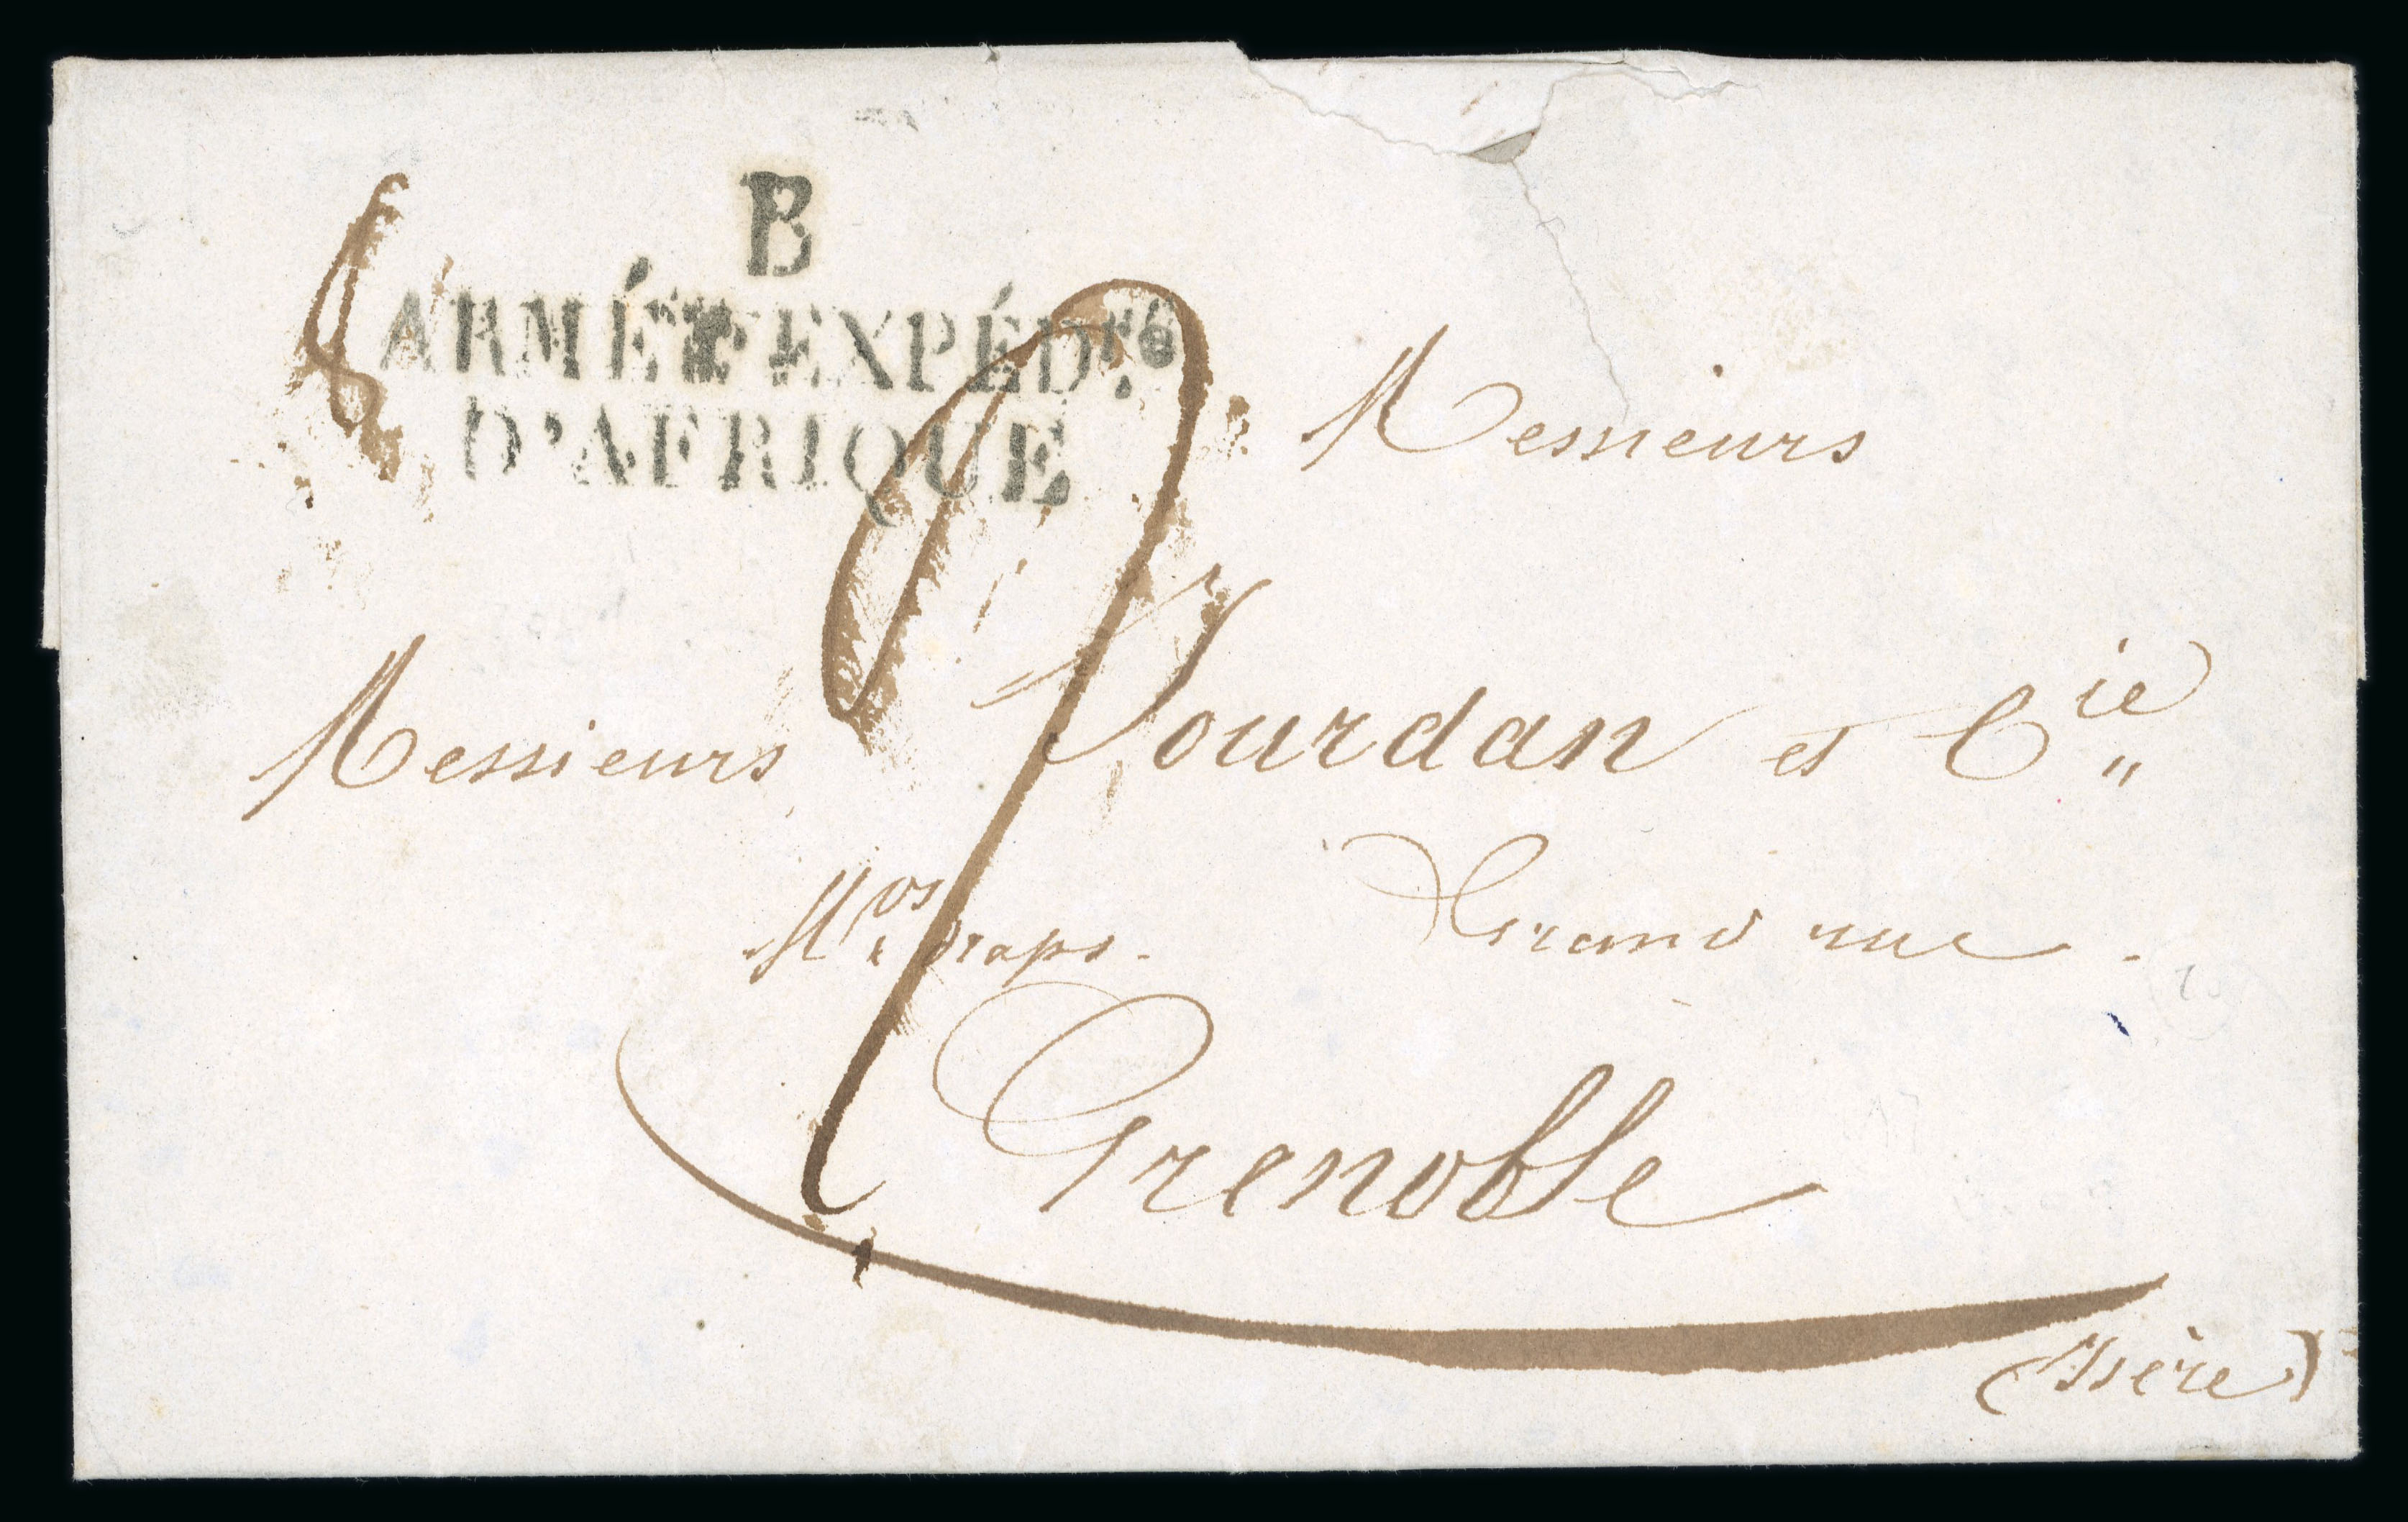 B
ARMÉE EXPÉD.re
D'AFRIQUE
Messieurs
Messieurs Jourdan et Cie
Mds draps. Grand rue.
Grenoble
(Isère)